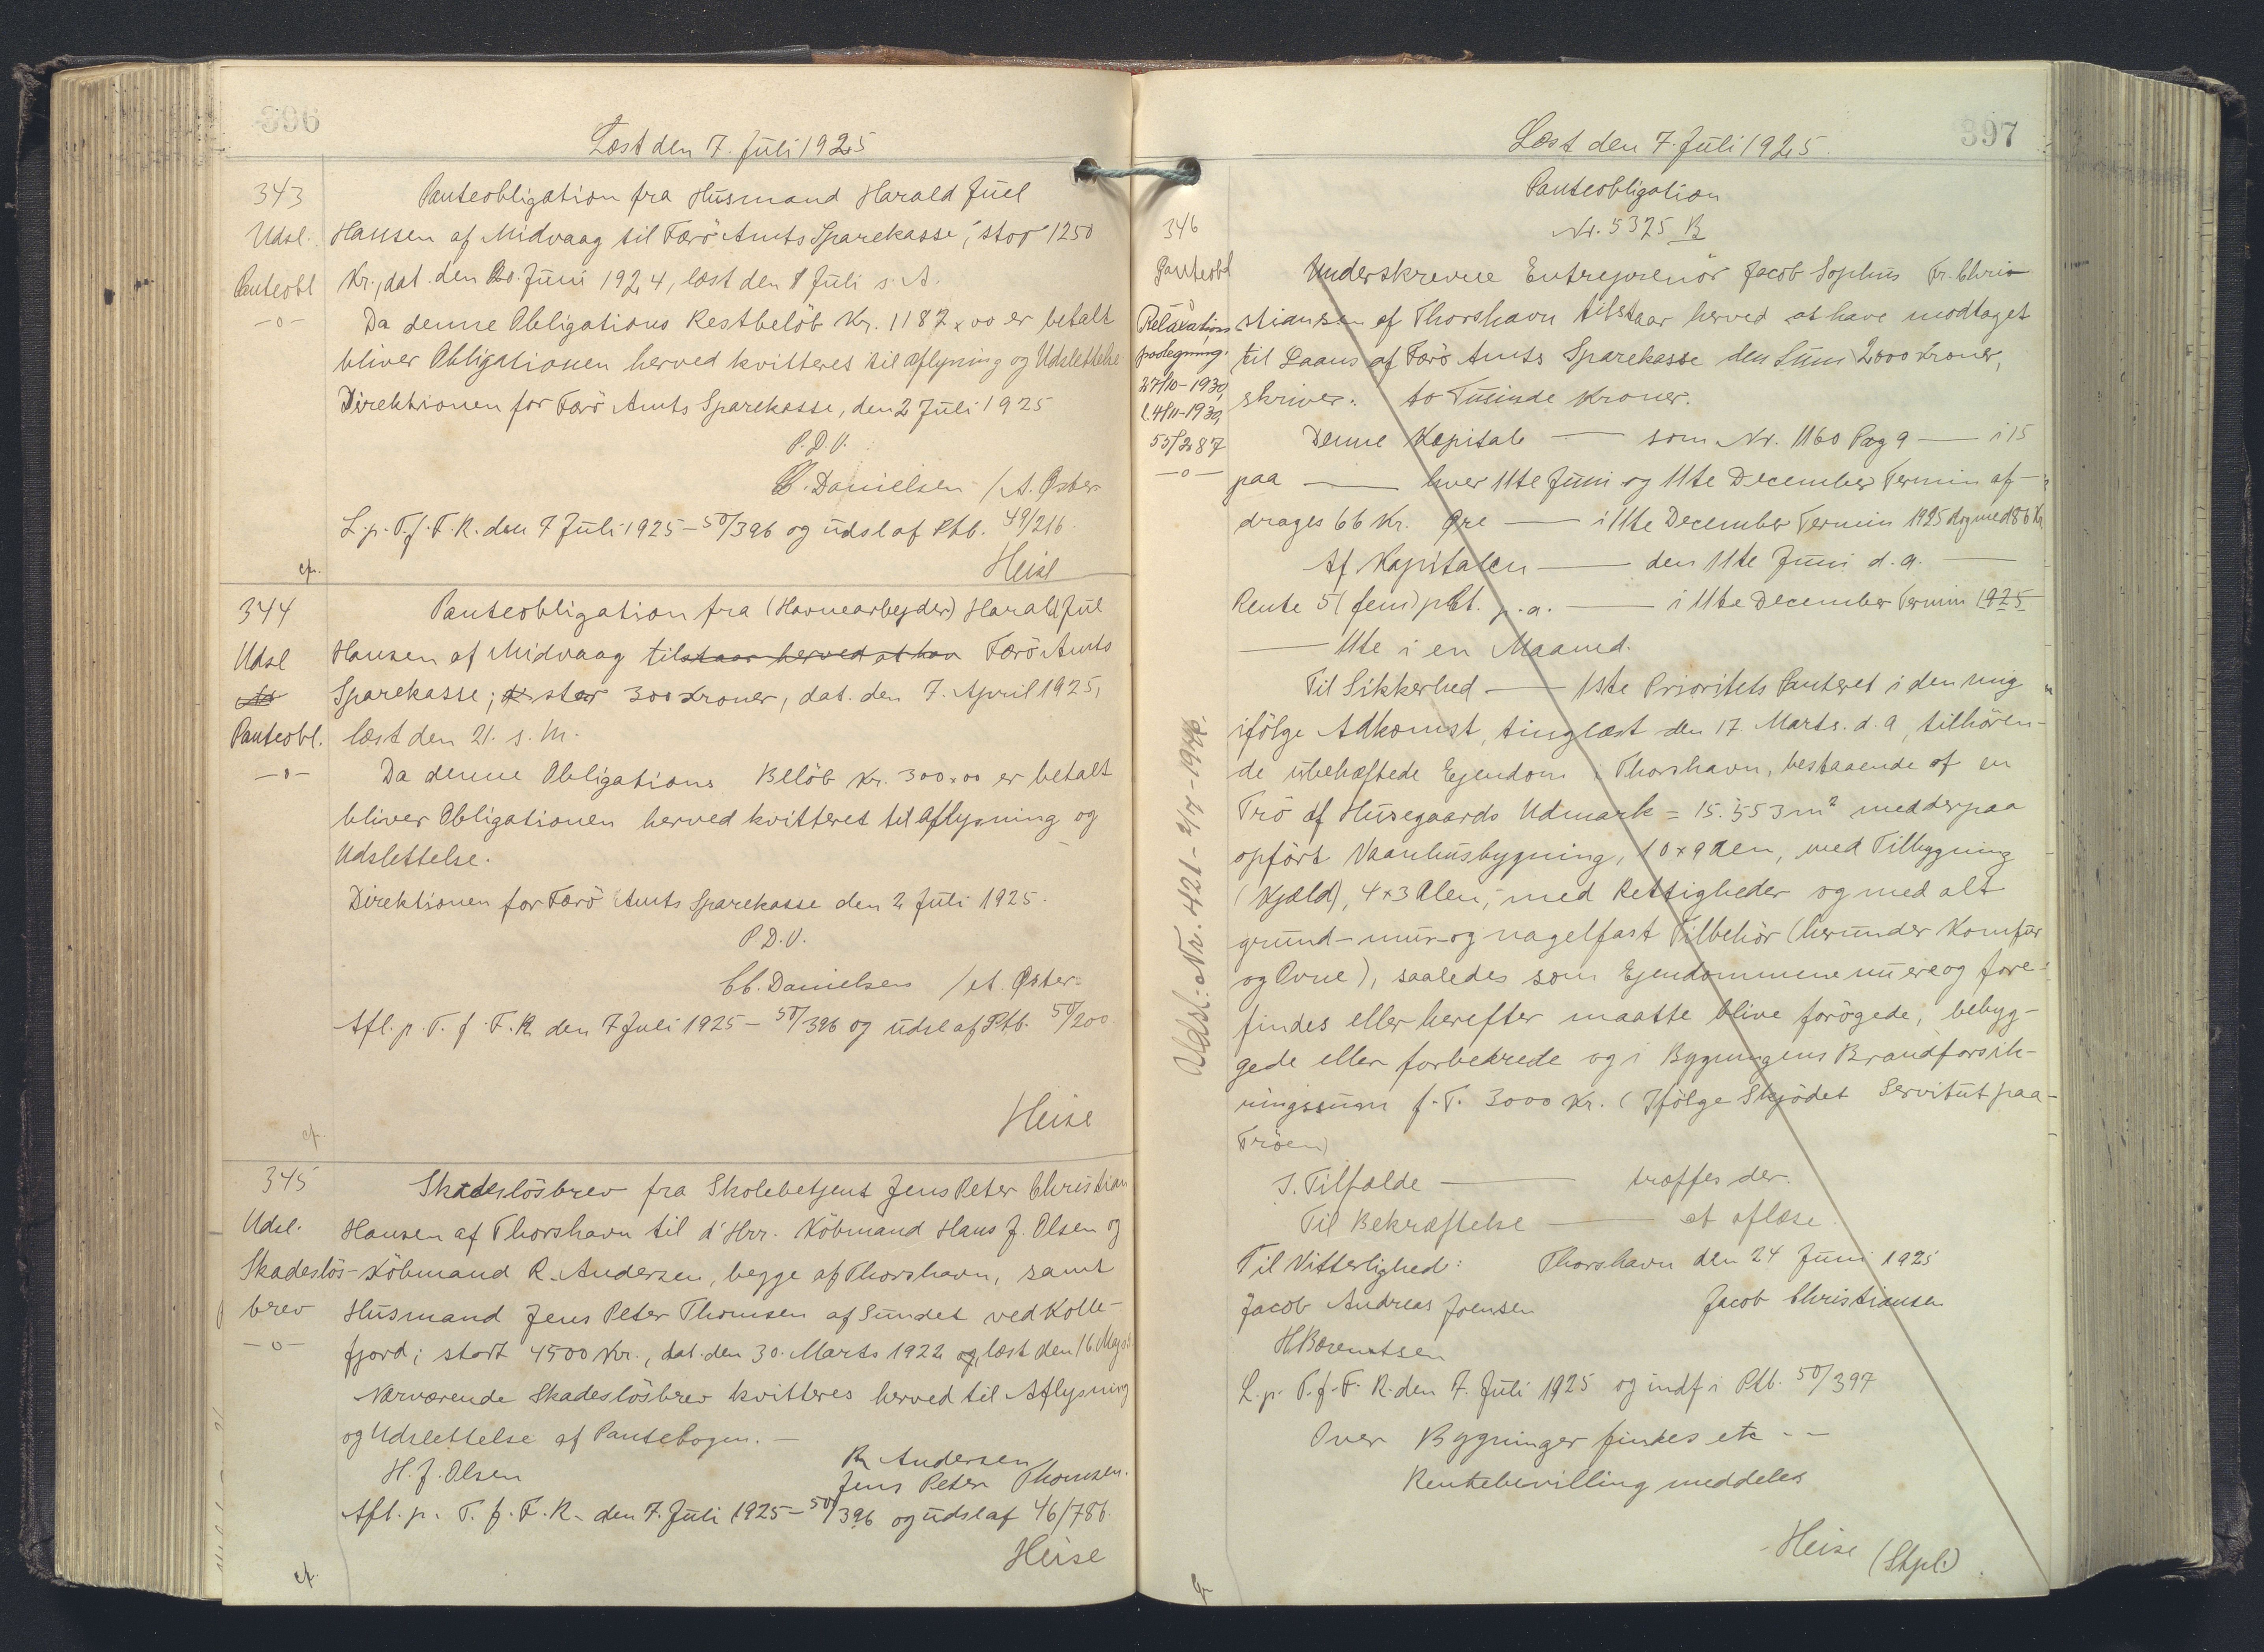 396
Læst den 7. Juli 1925
343
Udsl.
Panteobl
-o-
Panteobligation fra Husmand Harald Juel
Hansen af Midvaag til Færö Amts Sparekasse, stor 1250
Kr., dat. den 20. Juni 1924, læst den 8 Juli s. A.
Da denne Obligations Restbelöb Kr. 1187 x 00 er betalt
bliver Obligationen herved kvitteret til Aflysning og Udslettelse
Direktionen for Færö Amts Sparekasse, den 2 Juli 1925
P.D.V.
C. Danielsen / A. Öster
L. p. T. f. F. R. den 7 Juli 1925 - 50/396 og udsl af Ptb. 49/216
Heise
cf.
344
Udsl
Panteobl.
-o-
Panteobligation fra (Havnearbejder) Harald Jul
Hansen af Midvaag tilstaar herved at hav Færö Amts
Sparekasse; stor 300 Kroner, dat. den 7. April 1925,
læst den 21. s. M.
Da denne Obligations Belöb Kr. 300 x 00 er betalt
bliver Obligationen herved kvitteret til Aflysning og
Udslettelse.
Direktionen for Færö Amts Sparekasse den 2 Juli 1925.
P.D.V.
C. Danielsen / A. Öster
Afl. p. T. f. F. R den 7 Juli 1925 - 50/396 og udsl af Ptb. 50/200
Heise
cf.
345
Udsl.
Skadeslös-
brev
-o-
Skadeslösbrev fra Skolebetjent Jens Peter Christian
Hansen af Thorshavn til d'Hrr. Köbmand Hans J. Olsen og
Köbmand R. Andersen, begge af Thorshavn, samt
Husmand Jens Peter Thomsen af Sundet ved Kolle-
fjord; stort 4500 Kr., dat. den 30. Marts 1922 og læst den 16. Maj
Nærværende Skadeslösbrev kvitteres herved til Aflysning
og Udslettelse af Pantebogen. -
H. J. Olsen
R Andersen
Jens Peter Thomsen.
Afl. p. T. f. F. R. den 7. Juli 1925 - 50/396 og udsl af 46/786.
Heise
cf.
397
Læst den 7. Juli 1925.
346
Panteobl
Relaxations
paategning.
27/10-1930,
l. 4/11-1930,
55/287
-o-
Udsl: Nr. 421-2/7-1946.
Panteobligation
Nr. 5375 B
Underskrevne Entreprenör Jacob Sophus Fr. Chri
stiansen af Thorshavn tilstaar herved at have modtaget
til Laans af Færö Amts Sparekasse den Sum 2000 Kroner,
skriver: to Tusinde Kroner.
Denne Kapital - som Nr. 1160 Pag 9 - i 15
paa - hver 11te Juni og 11te December Termin af-
drages 66 Kr. Øre - i 11te December Termin 1925 dog med 86 Kr
Af Kapitalen - den 11te Juni d. a. -
Rente 5 (fem) pCt. p. a. - i 11te December Termin 1925
- 11te i en Maaned.
Til Sikkerhed - 1ste Prioritets Panteret i den mig
ifölge Adkomst, tinglæst den 17. Marts. d. a, tilhören-
de ubehæftede Ejendom i Thorshavn, bestaaende af en
Trö af Husegaards Udmark = 15.553 m² med derpaa
opfört Vaanhusbygning, 10 x 9 Alen, med Tilbygning
(Kjæld), 4 x 3 Alen, med Rettigheder og med alt
grund- mur- og nagelfast Tilbehör (herunder Komfur
og Ovne), saaledes som Ejendommene nu ere og fore-
findes eller herefter maatte blive forögede, bebyg-
gede eller forbedrede og i Bygningens Brandforsik-
ringssum f. T. 3000 Kr. (Ifölge Skjödet Servitut paa
Tröen)
I. Tilfælde - træffes der.
Til Bekræftelse - at aflæse.
Til Vitterlighed: Thorshavn den 24 Juni 1925
Jacob Andreas Joensen Jacob Christiansen
H Berentsen
L. p. T. f. F. R. den 7. Juli 1925 og indf i Ptb. 50/397
Over Bygninger findes etc - -
Rentebevilling meddeles
Heise (Stpl.)